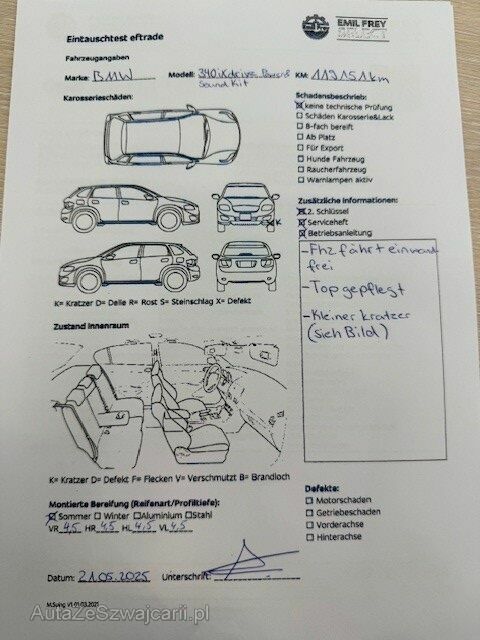 EMIL FREY
SELECT
Eintauschtest eftrade
Fahrzeugangaben
Marke: BMW Modell: 340iXdrive Power& Sound Kit KM: 119151km
Karosserieschäden:
Schadensbeschrieb:
☒ keine technische Prüfung
☐ Schäden Karosserie&Lack
☐ 8-fach bereift
☐ Ab Platz
☐ Für Export
☐ Hunde Fahrzeug
☐ Raucherfahrzeug
☐ Warnlampen aktiv
K
K= Kratzer D= Delle R= Rost S= Steinschlag X= Defekt
Zusätzliche Informationen:
☒ 2. Schlüssel
☒ Serviceheft
☒ Betriebsanleitung
- Fhz fährt einwand
frei
- Top gepflegt
- Kleiner kratzer
(sieh Bild)
Zustand Innenraum
K= Kratzer D= Defekt F= Flecken V= Verschmutzt B= Brandloch
Montierte Bereifung (Reifenart/Profiltiefe):
☑ Sommer ☐ Winter ☐ Aluminium ☐ Stahl
VR 4,5 HR 4,5 HL 4,5 VL 4,5
Defekte:
☐ Motorschaden
☐ Getriebeschaden
☐ Vorderachse
☐ Hinterachse
Datum: 21.05.2025 Unterschrift:
AutaZeSzwajcarii.pl